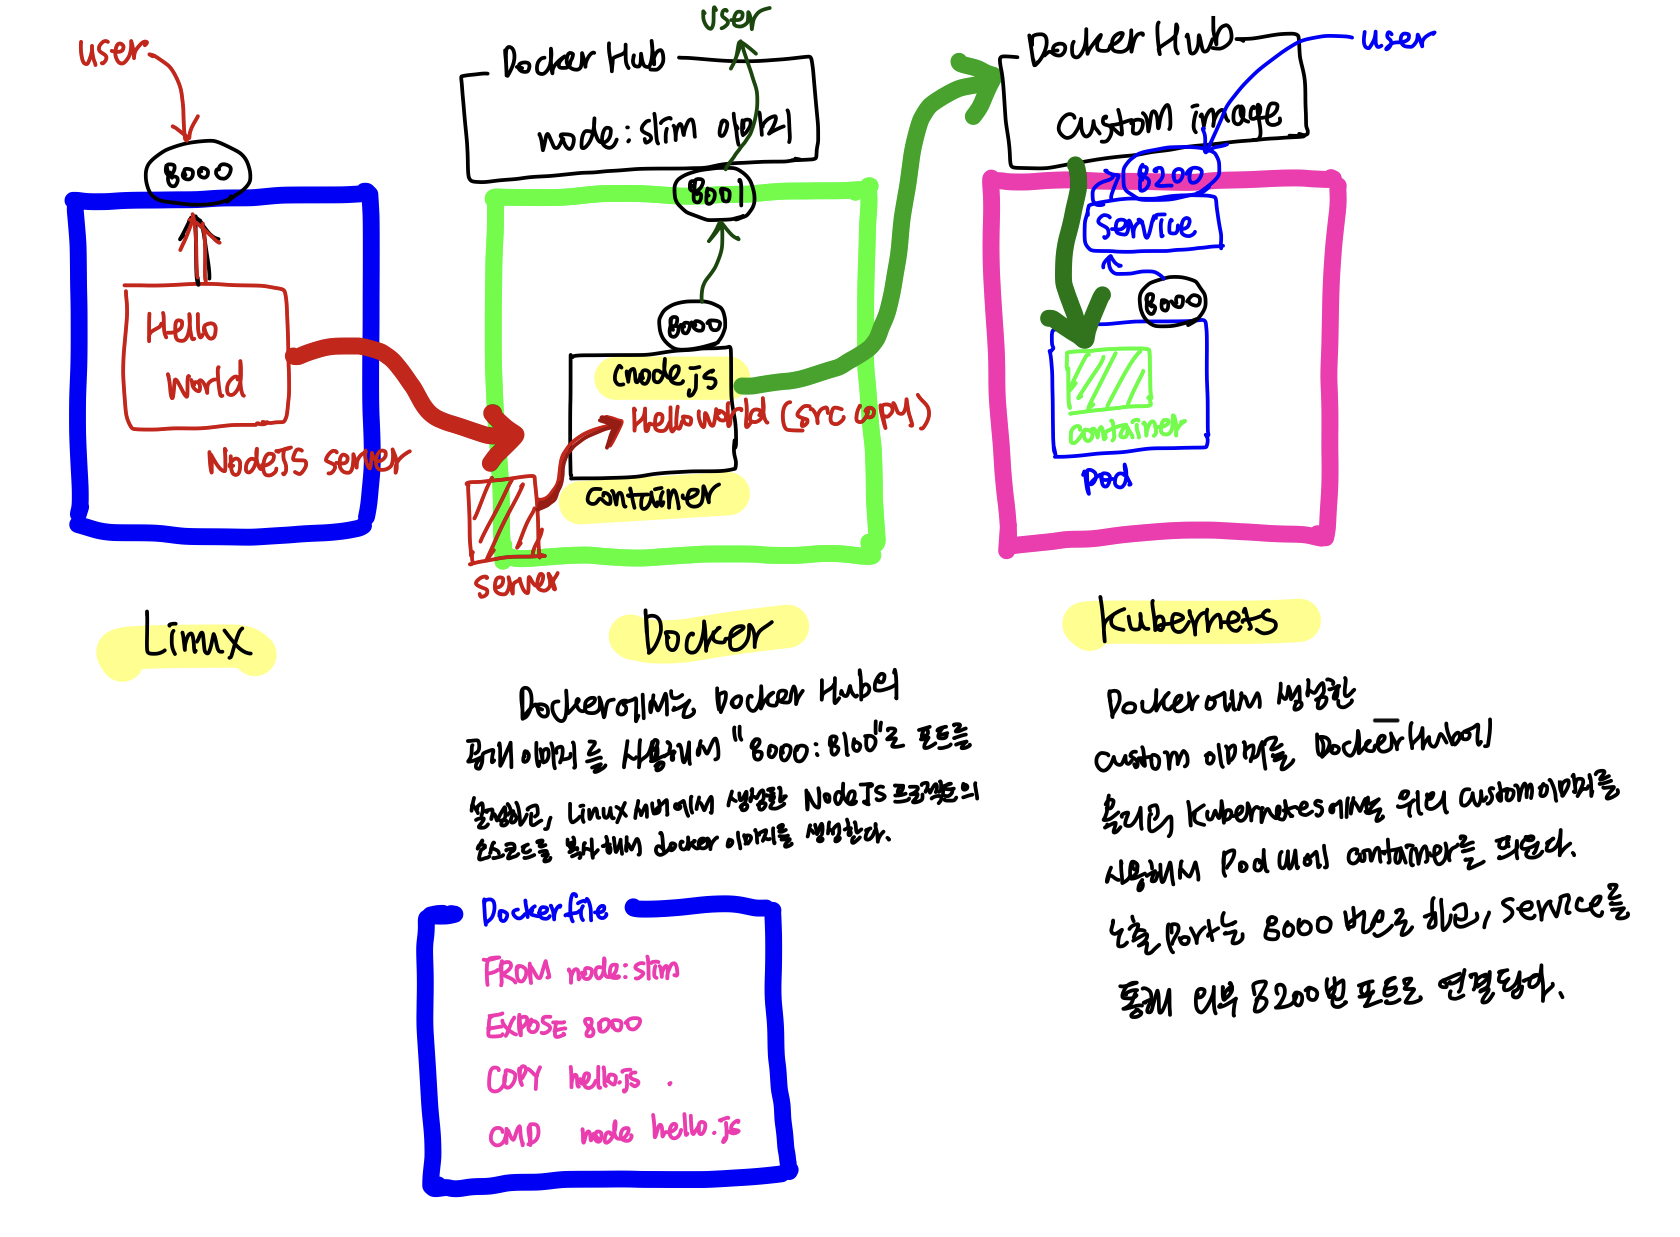 user
8000
Hello
World
NodeJS server
Linux
Docker Hub
node:slim 이미지
user
8001
8000
nodejs
Hello world (src copy)
container
server
Docker
Docker에서는 Docker Hub의
공개 이미지를 사용해서 "8000:8100"로 포트를
설정하고, Linux 서버에서 생성한 NodeJS 프로젝트의
소스코드를 복사해서 docker 이미지를 생성한다.
Dockerfile
FROM node:slim
EXPOSE 8000
COPY hello.js .
CMD node hello.js
Docker Hub
custom image
user
8200
service
8000
container
pod
Kubernets
Docker에서 생성한
custom 이미지를 DockerHub에
올리고, Kubernetes에서는 위의 custom이미지를
사용해서 Pod 내에 container를 띄운다.
노출 port는 8000 번으로 하고, service를
통해 외부 8200번 포트로 연결된다.